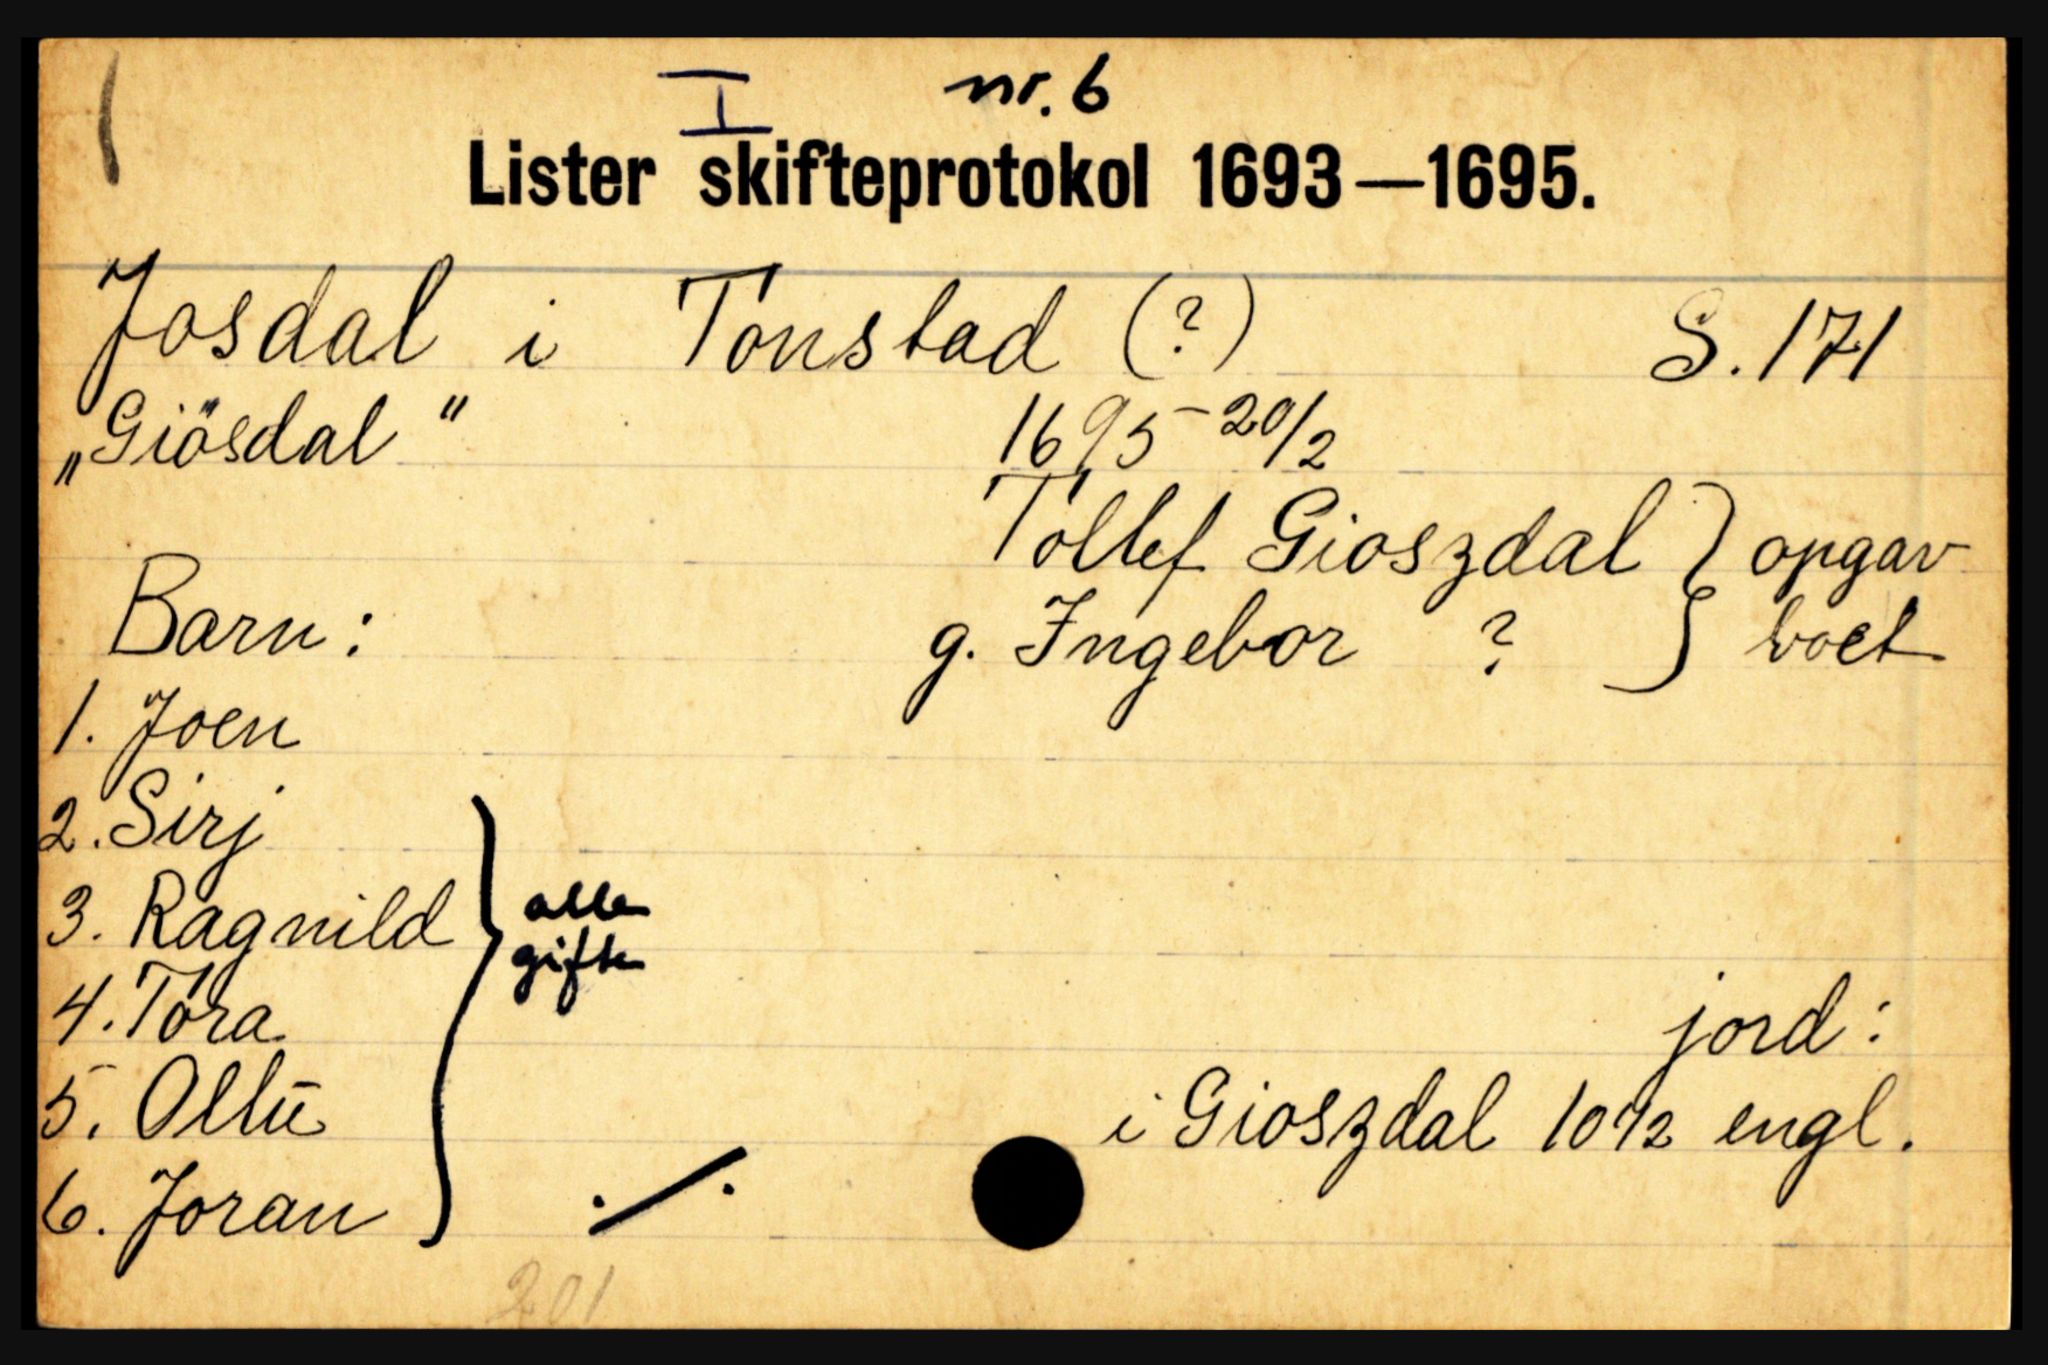 I nr. 6
Lister skifteprotokol 1693—1695.
Josdal i Tonstad (?) S. 171
„Giösdal" 1695 - 20/2
Tollef Gioszdal } opgav
Barn: g. Ingebor ? } boet
1. Joen
2. Sirj
3. Ragnild } alle gifte
4. Tora
jord:
5. Ollū i Gioszdal 10 1/2 engl.
6. Joran ./.
201